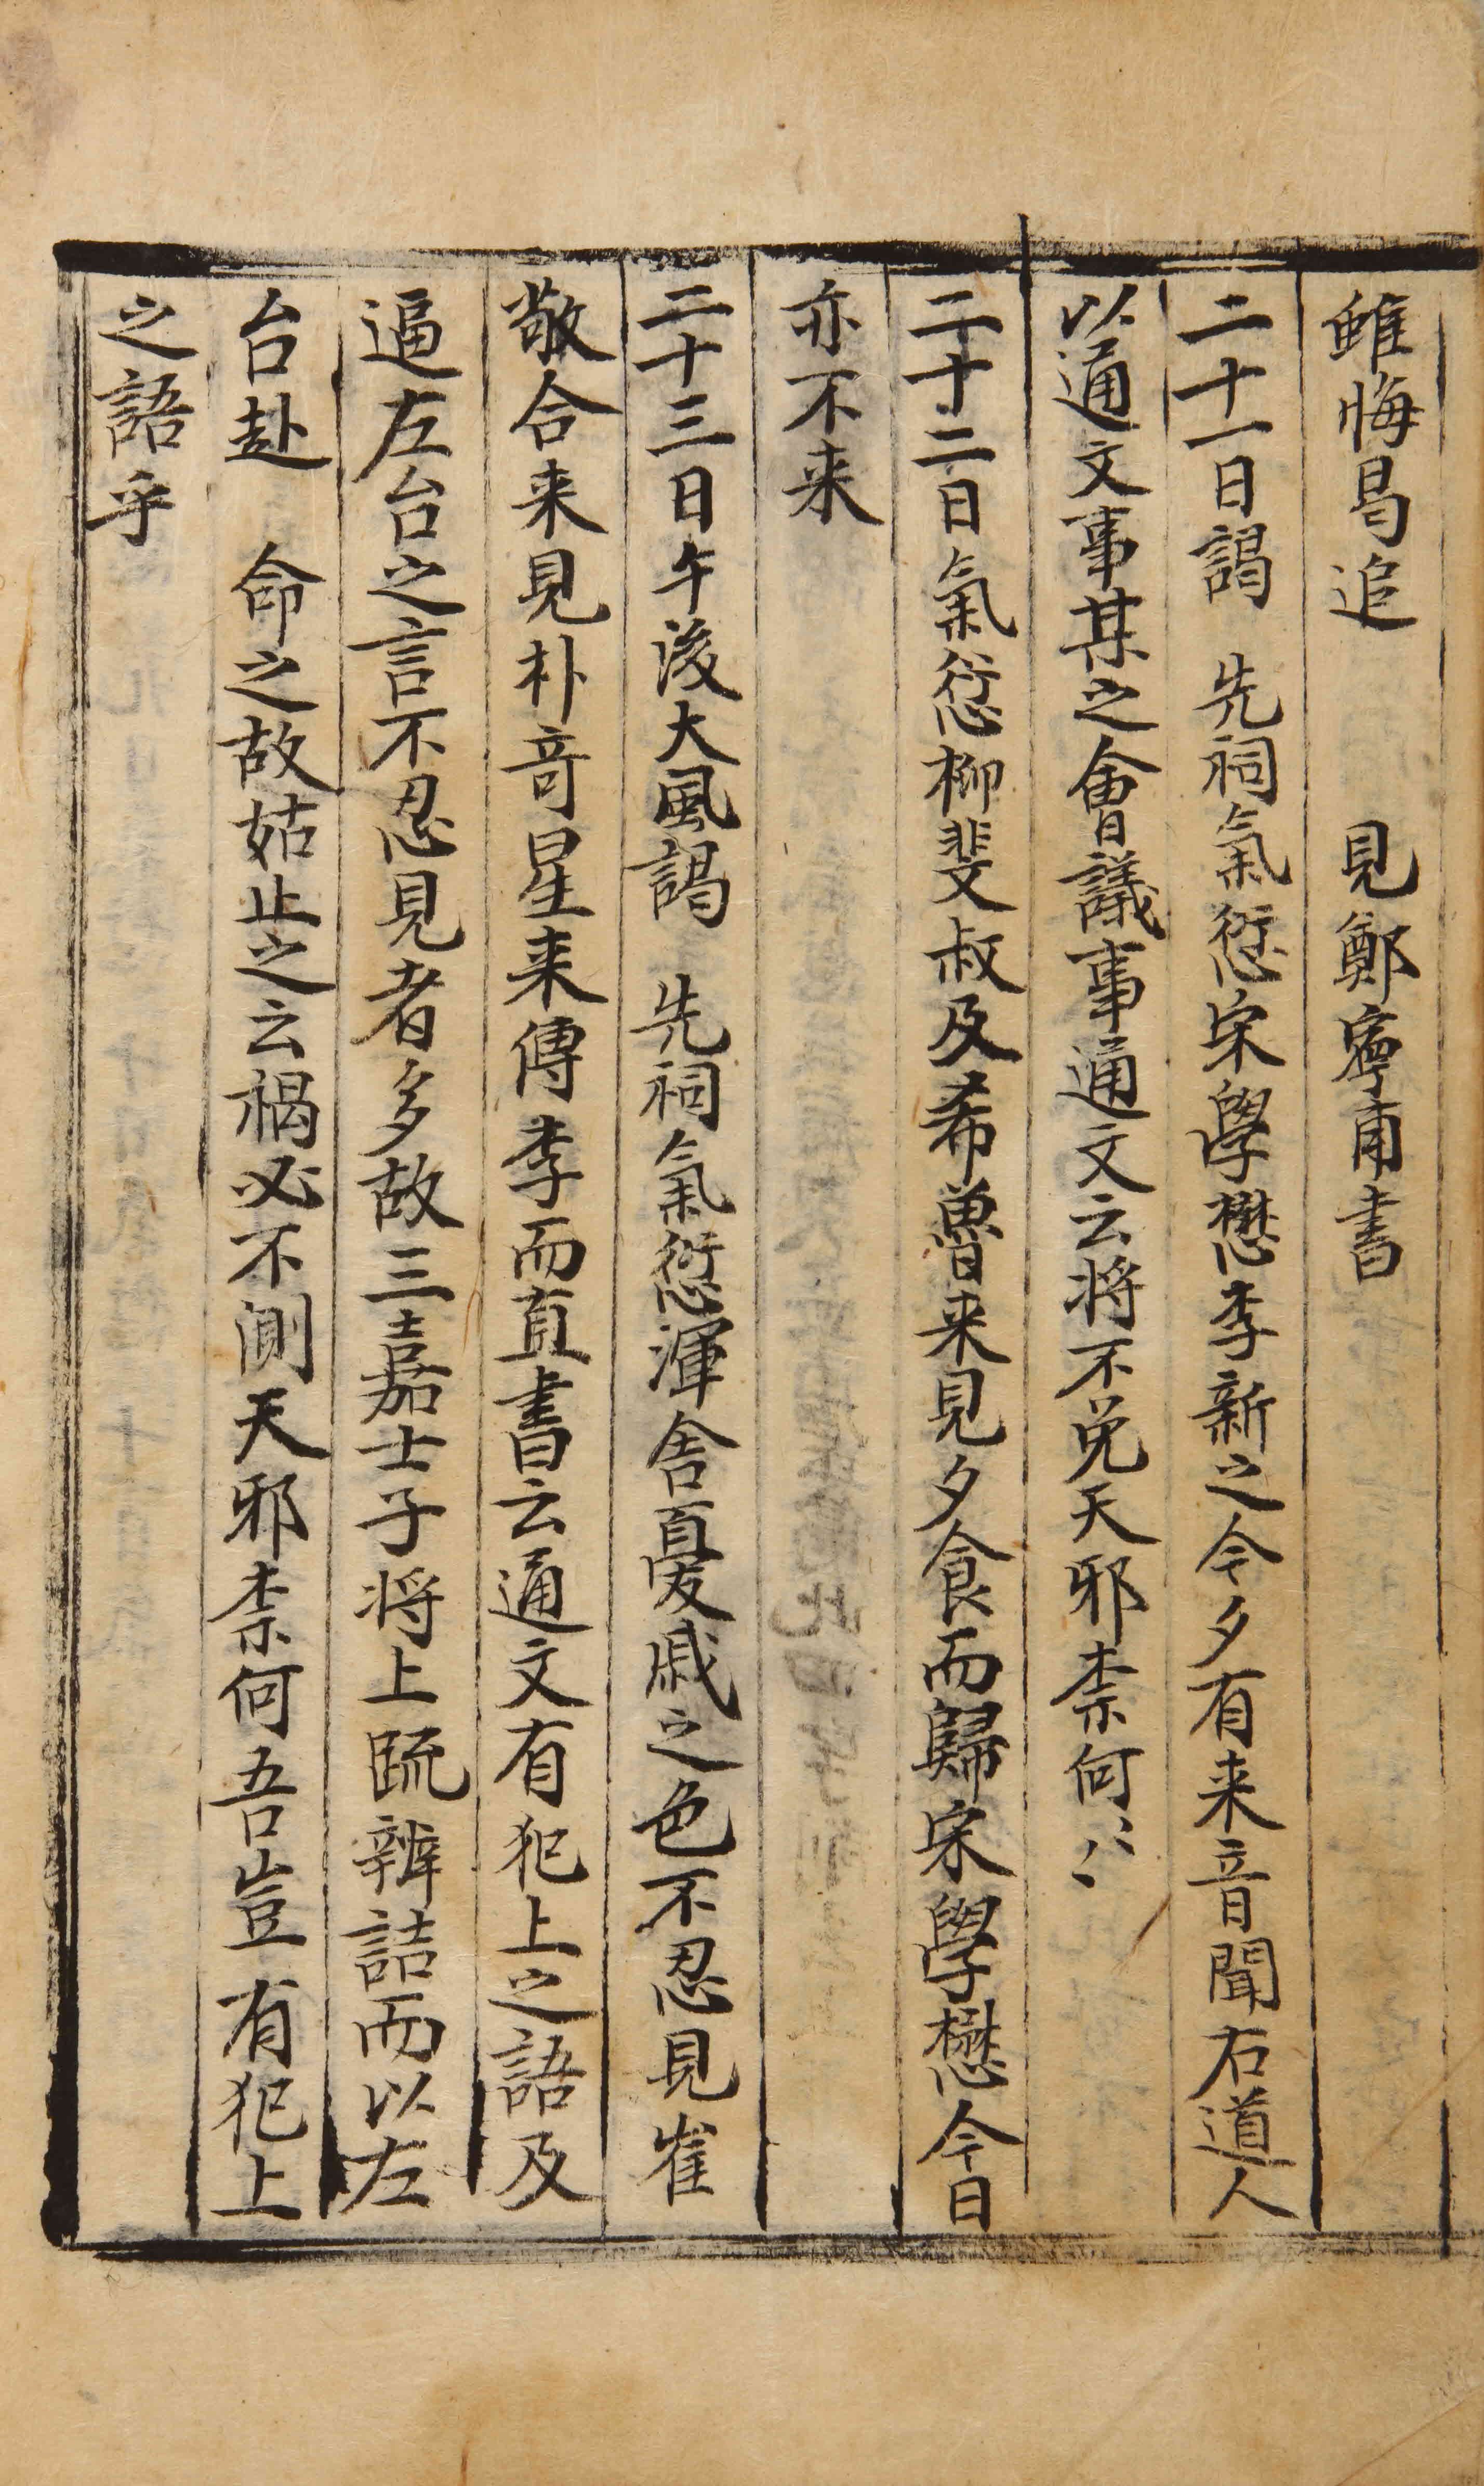 雖悔曷追　見鄭寧甫書
二十一日謁　先祠氣愆宋學懋李新之今夕有来音聞右道人
以通文事某之會議事通文云将不免天邪柰何〻〻
二十二日氣愆柳斐叔及希魯来見夕食而歸宋學懋今日
亦不来
二十三日午後大風謁　先祠氣愆渾舍憂戚之色不忍見崔
敬合来見朴奇星来傳李而直書云通文有犯上之語及
逼左台之言不忍見者多故三嘉士子将上䟽辨詰而以左
台赴　命之故姑止之云禍必不測天邪柰何吾豈有犯上
之語乎